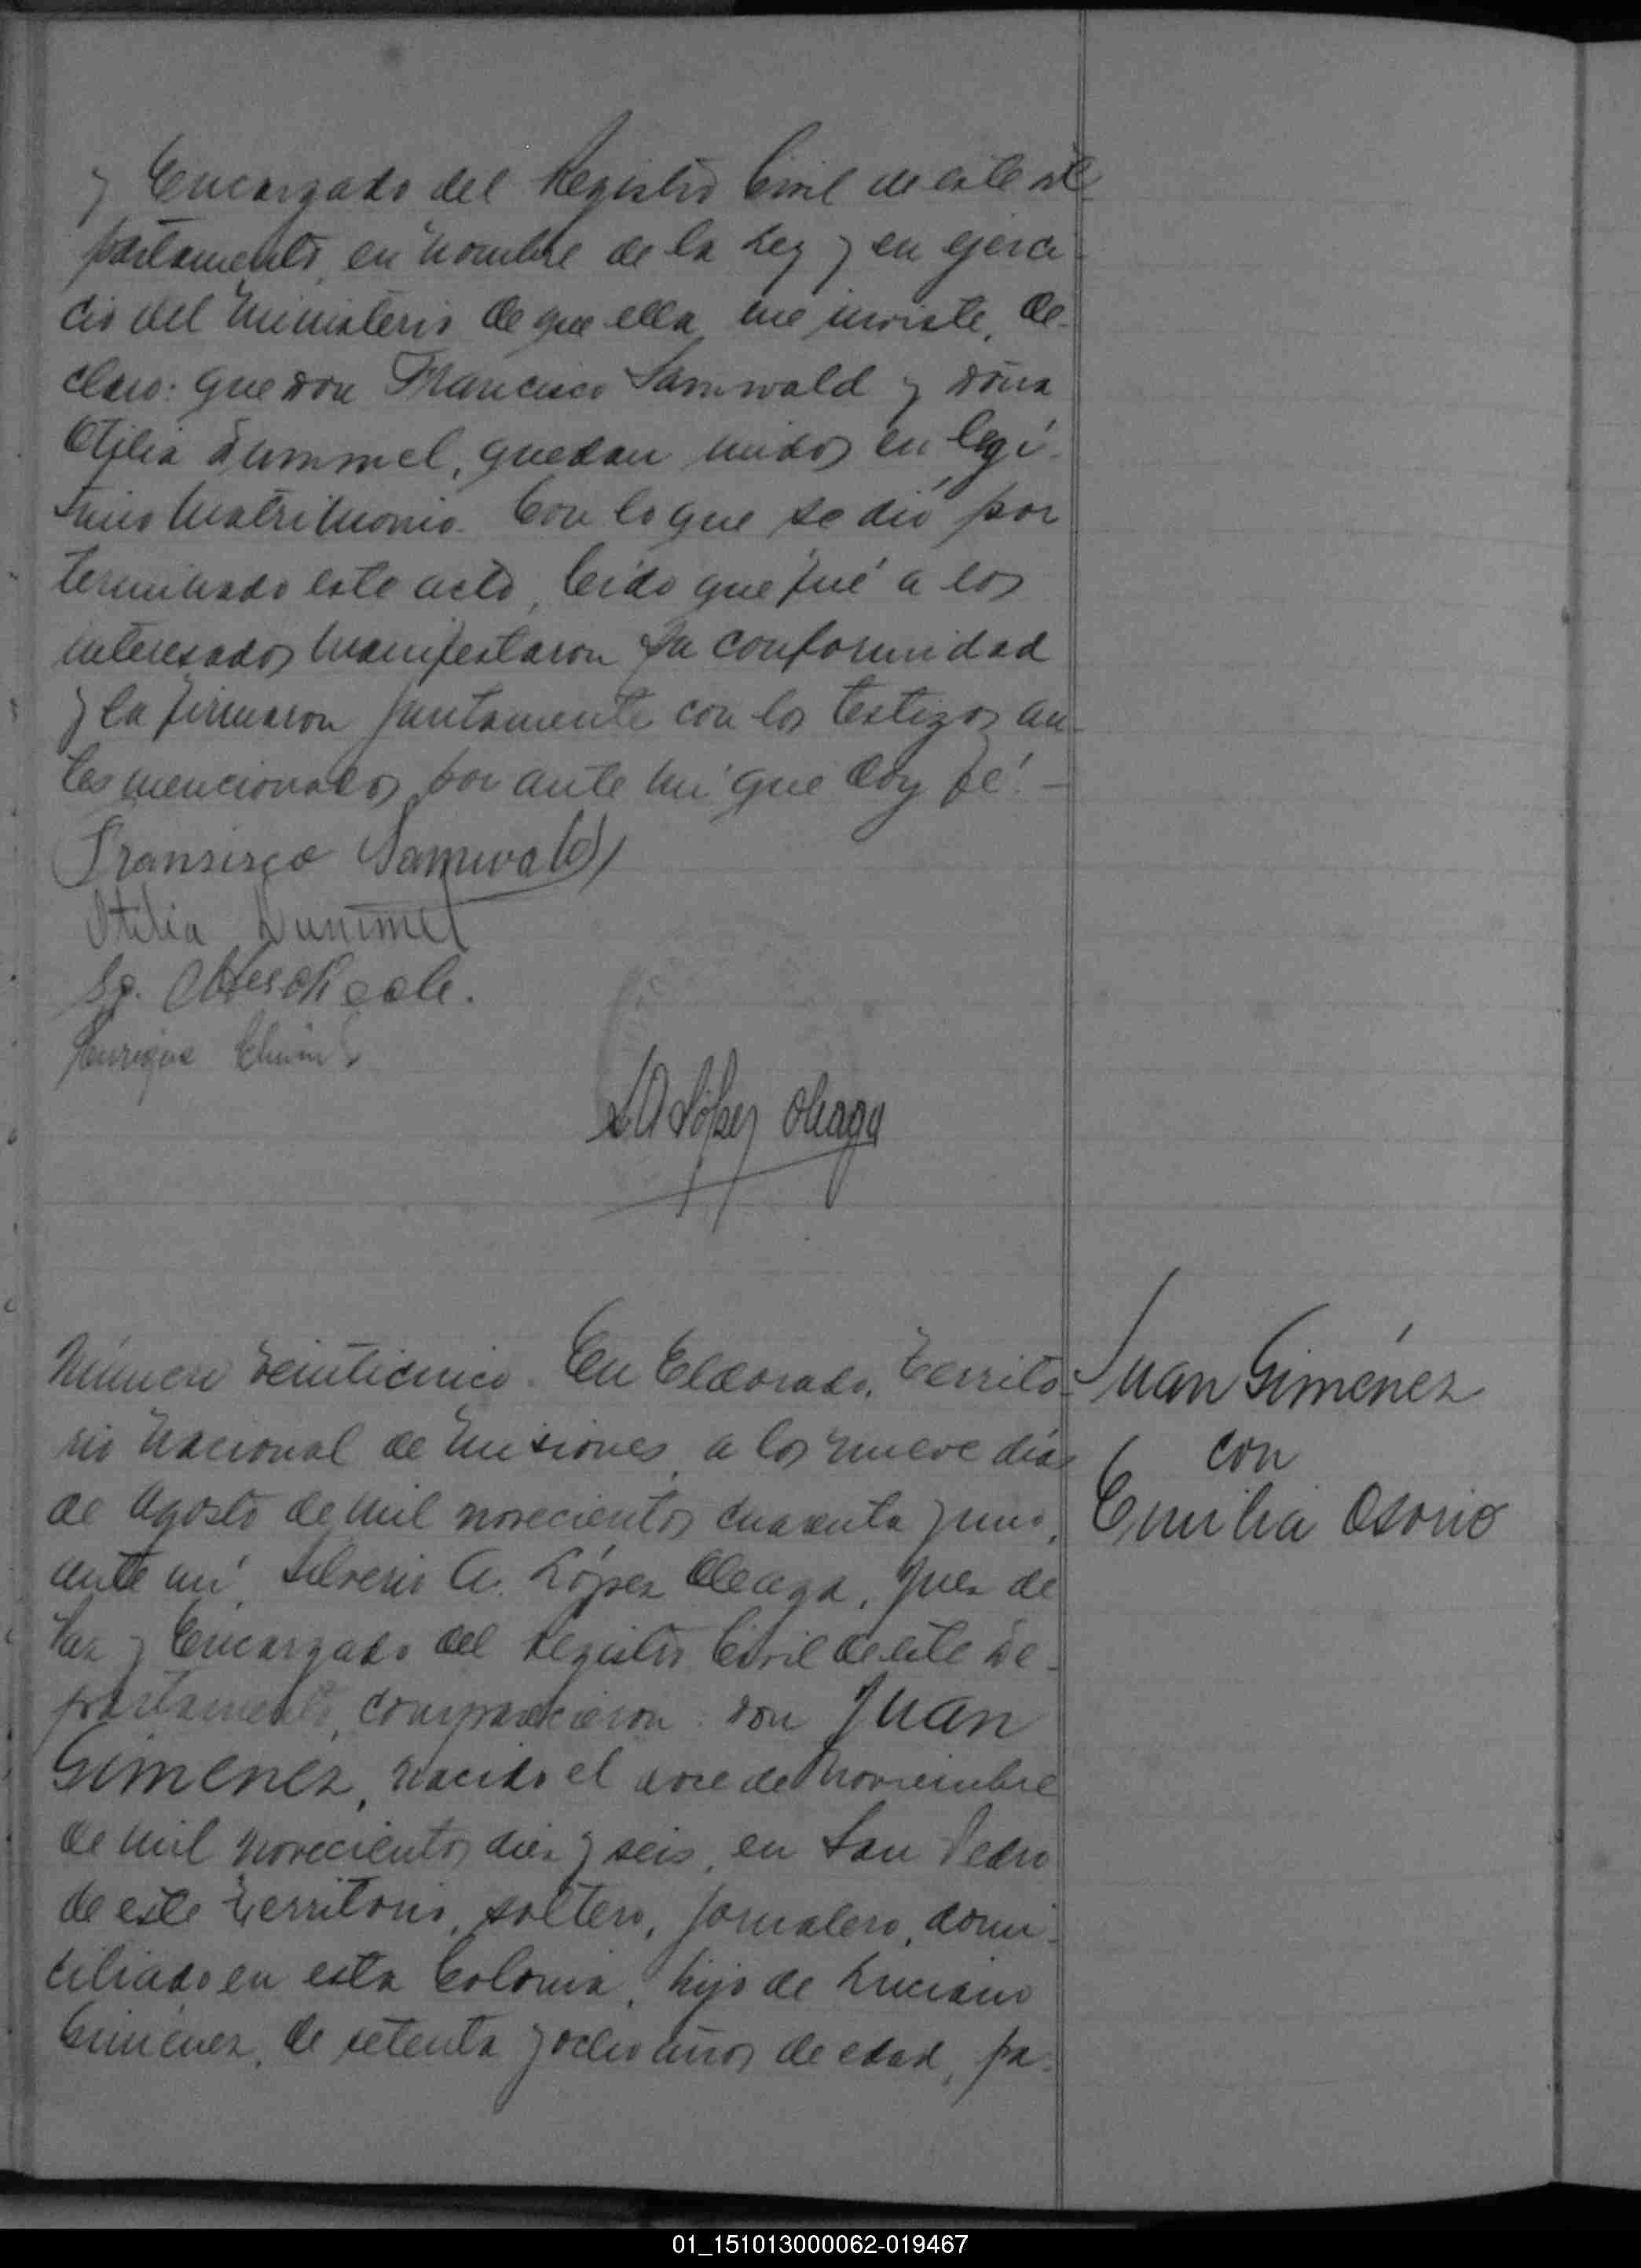 y Encargado del Registro Civil de este de-
partamento, en nombre de la Ley y en ejerci-
cio del Ministerio de que ella me inviste, de-
claro: que don Francisco Samwald y doña
Otilia Dummel, quedan unidos en legí-
timo Matrimonio. Con lo que se dió por
terminado este acto, leído que fué a los
interesados manifestaron su conformidad
y la firmaron juntamente con los testigos an-
tes mencionados, por ante mí que doy fé. -
Fransisco Samwald
Otilia Dummel
Enrique
López Oleaga
Número veinticinco. En Eldorado, Territo-
rio Nacional de Misiones, a los nueve días
de Agosto de mil novecientos cuarenta y uno,
ante mí, Silverio A. López Oleaga, Juez de
Paz y Encargado del Registro Civil de este De-
partamento, comparecieron: don Juan
Gimenez, nacido el doce de Noviembre
de mil novecientos diez y seis, en San Pedro
de este Territorio, soltero, jornalero, domi-
ciliado en esta Colonia, hijo de Luciano
Giménez, de setenta y ocho años de edad, pa-
Juan Giménez
con
Emilia Osorio
01_151013000062-019467